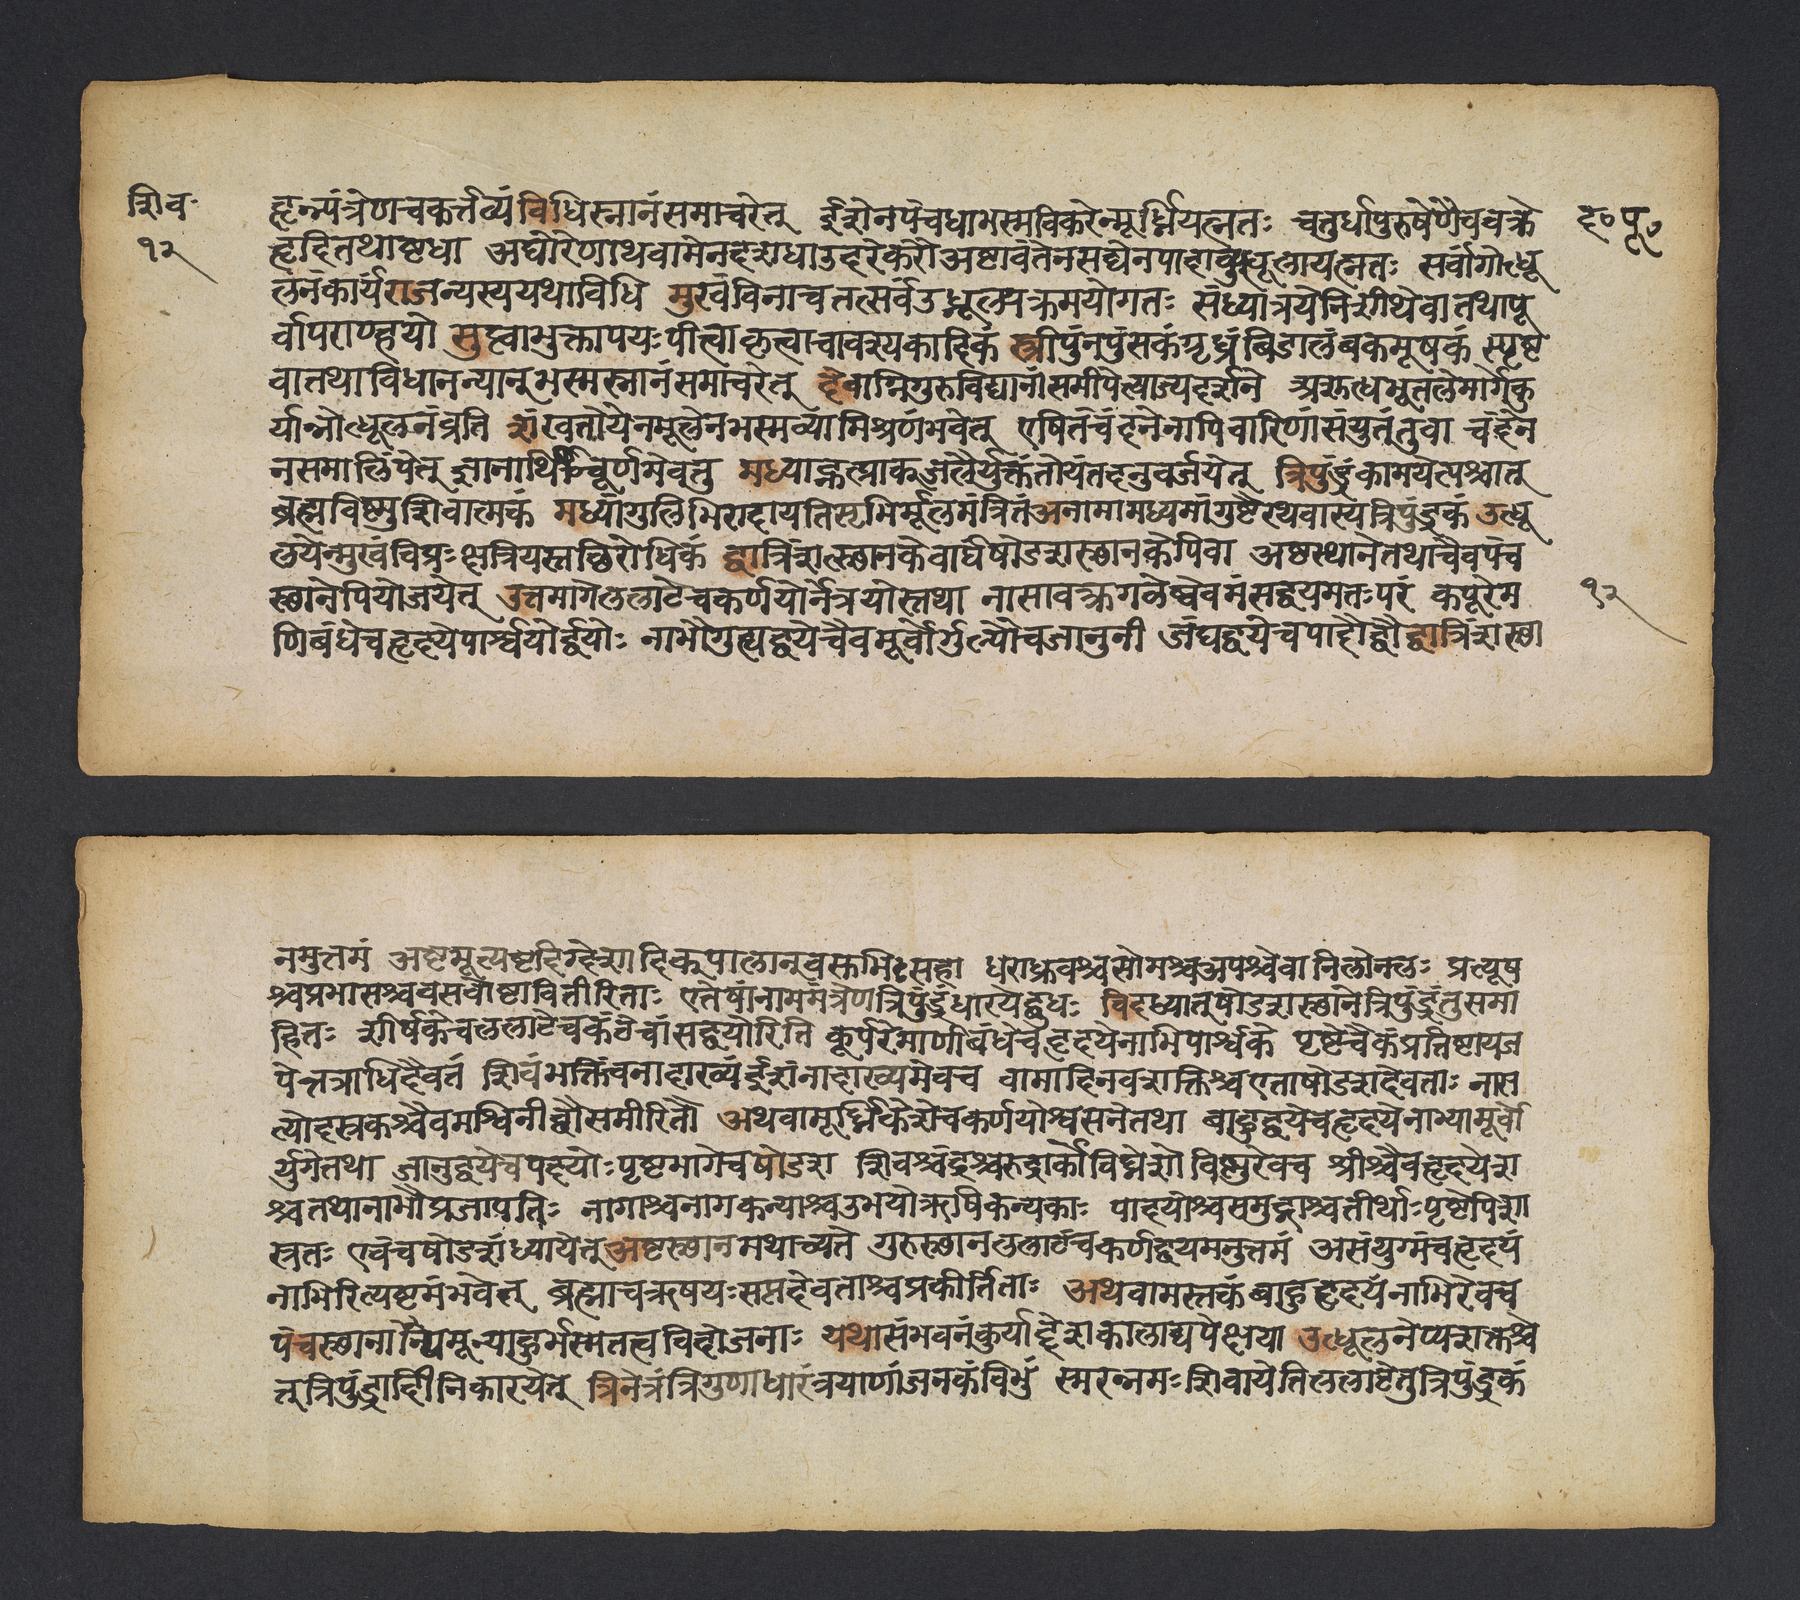 शिव॰
१२
द॰ पू॰
हृन्मंत्रेणचकर्त्तव्यंविधिस्नानंसमाचरेत् ईशेनपंचधाभस्मविकरेन्मूर्ध्नियत्नतः चतुर्धापुरुषेणैववक्त्रे
हृदितथाष्टधा अघोरेणाथवामेनदशधाउदरेकरौअष्टावंतेनसद्येनपादावुद्धूलायत्नतः सर्वांगोद्धू
लनंकार्यंराजन्यस्ययथाविधि मुखंविनाचतत्सर्वंउद्धूल्यक्रमयोगतः संध्यात्रयेनिशीथेवातथापू
र्वापराण्हयोः सुप्त्वाभुक्तापयःपीत्वाकृत्वाचावश्यकादिकं स्त्रीपुंनपुंसकंगृध्रंबिडालंबकमूषकं स्पृष्ट
वातथाविधानन्यान्भस्मस्नानंसमाचरेत् देवाग्निगुरुविद्यानांसमीपेत्याज्यदर्शने अस्पृत्यभूतलेमार्गेकु
र्यान्नोद्धूलनंव्रति शंखतोयेनमूलेनभस्मव्यामिश्रणंभवेत् एषितंचंदनेनापिवारिणांसंयुतंतुवा चंदने
नसमालिंपेत् ज्ञानार्थिचूर्णमेवतु मध्याह्नेत्प्राक्जलैर्युक्तंतोयंतदनुवर्जयेत् त्रिपुंड्रंकामयेत्पश्चात्
ब्रह्मविष्णुशिवात्मकं मध्यांगुलिभिरादायतिसृभिर्मूलमंत्रितंअनामामध्यमांगुष्टैरथवास्यत्रिपुंड्रकं उद्धू
लयेन्मुखंविप्रःक्षत्रियस्तच्छिरोधिकं द्वात्रिंशत्स्छानकेवार्घषोडशस्छानकेपिवा अष्टस्थानेतथाचैवपंच
स्छानेपियोजयेत् उत्तमांगेललाटेचकर्णयोर्नेत्रयोस्तथा नासावक्त्रगलेष्वेवमंसद्वयमतःपरं कर्पूरेम
णिबंधेचहृदयेपार्श्वयोर्द्वयोः नाभौगुह्यद्वयेचैवमूर्वोर्गुल्फोचजानुनी जंघद्वयेचपादौद्वौद्वात्रिंशस्छा
१२
नमुत्तमं अष्टमूर्त्यष्टदिग्देशादिक्पालान्वस्तभिःसहो धराध्रुवश्चसोमश्चअपश्चेवानिलोनलः प्रत्यूष
श्चप्रभासश्चवसवोष्टावितीरिताः एतेषांनाममंत्रेणत्रिपुंड्रंधारयेद्बुधः विदध्यात्षोडशस्छानेत्रिपुंड्रंतुसमा
हितः शीर्षकेचललाटेचकंठेचांसद्वयोरिति कूर्परेमाणीबंधेचहृदयेनाभिपार्श्वके पृष्टेचैकंप्रतिष्टायज
पेत्तत्राधिदैवतं शिवंभक्तिंचनादाख्यंईशंनादाख्यमेवच वामादिनवशक्तिश्चएताषोडशदेवताः नास
त्योदस्त्रकश्चैवमश्विनीद्वौसमीरितौ अथवामूर्ध्निकेशेचकर्णयोश्वसनेतथा बाहुद्वयेचहृदयेनाभ्यामूर्वो
र्युगेतथा जानुद्वयेचपदयोःपृष्टभागेचषोडश शिवश्चंद्रश्चरुद्रार्कौविघ्नेशोविष्णुरेवच श्रीश्चैवहृदयेश
श्चतथानाभौप्रजापतिः नागाश्चनागकन्याश्चउभयोःऋषिकन्यकाः पादयोश्चसमुद्राश्चतीर्थाःपृष्टेपिशा
स्त्रतः एवंचषोडशंध्यायेत्अष्टस्छानमथोच्यते गुरुस्छानंललाटंचकर्णद्वयमनुत्तमं असंयुग्मंचहृदयं
नाभिरित्यष्टमंभवेत् ब्रह्माचऋषयःसप्तदेवताश्चप्रकीर्तिताः अथवामस्तकंबाहुहृदयंनाभिरेवच
पंचस्छानान्यमून्याहुर्भस्मतत्त्वविदोजनाः यथासंभवनंकुर्याद्देशकालाद्यपेक्षया उद्धूलनेप्यशक्तश्चे
त्त्रिपुंड्रादीनिकारयेत् त्रिनेत्रंत्रिगुणाधारंत्रयाणांजनकंविभुं स्मरन्नमःशिवायेतिललाटेतुत्रिपुंड्रकं